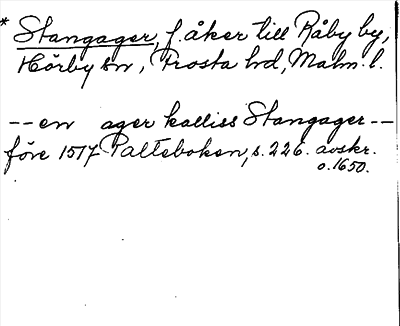 * Stangager, f. åker till Råby by,
Hörby sn, Frosta hd, Malm. l.
-- en ager kalliss Stangager --
före 1517 Palteboken, s. 226. avskr.
o. 1650.